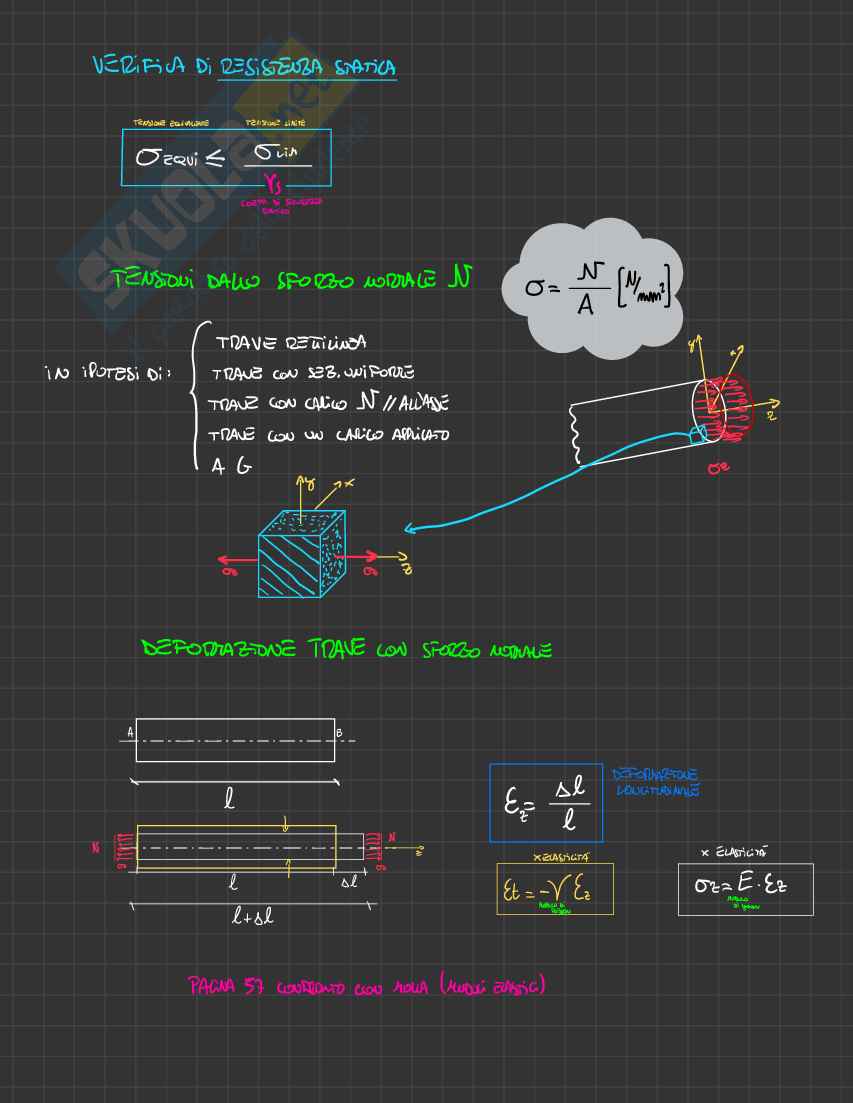 VERIFICA DI RESISTENZA STATICA
TENSIONE EQUIVALENTE TENSIONE LIMITE
σEQUI ≤ σLIM / γs
COEFF. DI SICUREZZA
STATICO
SKUOLA.net
TENSIONI DALLO SFORZO NORMALE N
σ = N/A [N/mm²]
IN IPOTESI DI:
TRAVE RETTILINEA
TRAVE CON SEZ. UNIFORME
TRAVE CON CARICO N // ALL'ASSE
TRAVE CON UN CARICO APPLICATO
A G
y x z
σz
y x
σ σ z
DEFORMAZIONE TRAVE CON SFORZO NORMALE
A B
l
N σ N σ z
l Δl
l+Δl
εz = Δl/l
DEFORMAZIONE
LONGITUDINALE
X ELASTICITÀ
εt = -ν εz
X ELASTICITÀ
σz = E · εz
PAGINA 57 CONFRONTO CON MOLLA (MODULI ELASTICI)